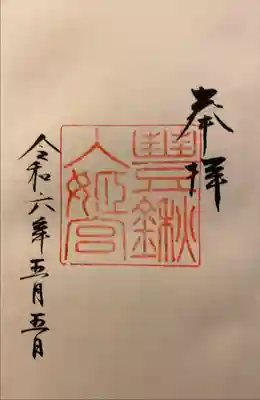 奉拝
豊鍬
大姫宮
令和六年五月五日